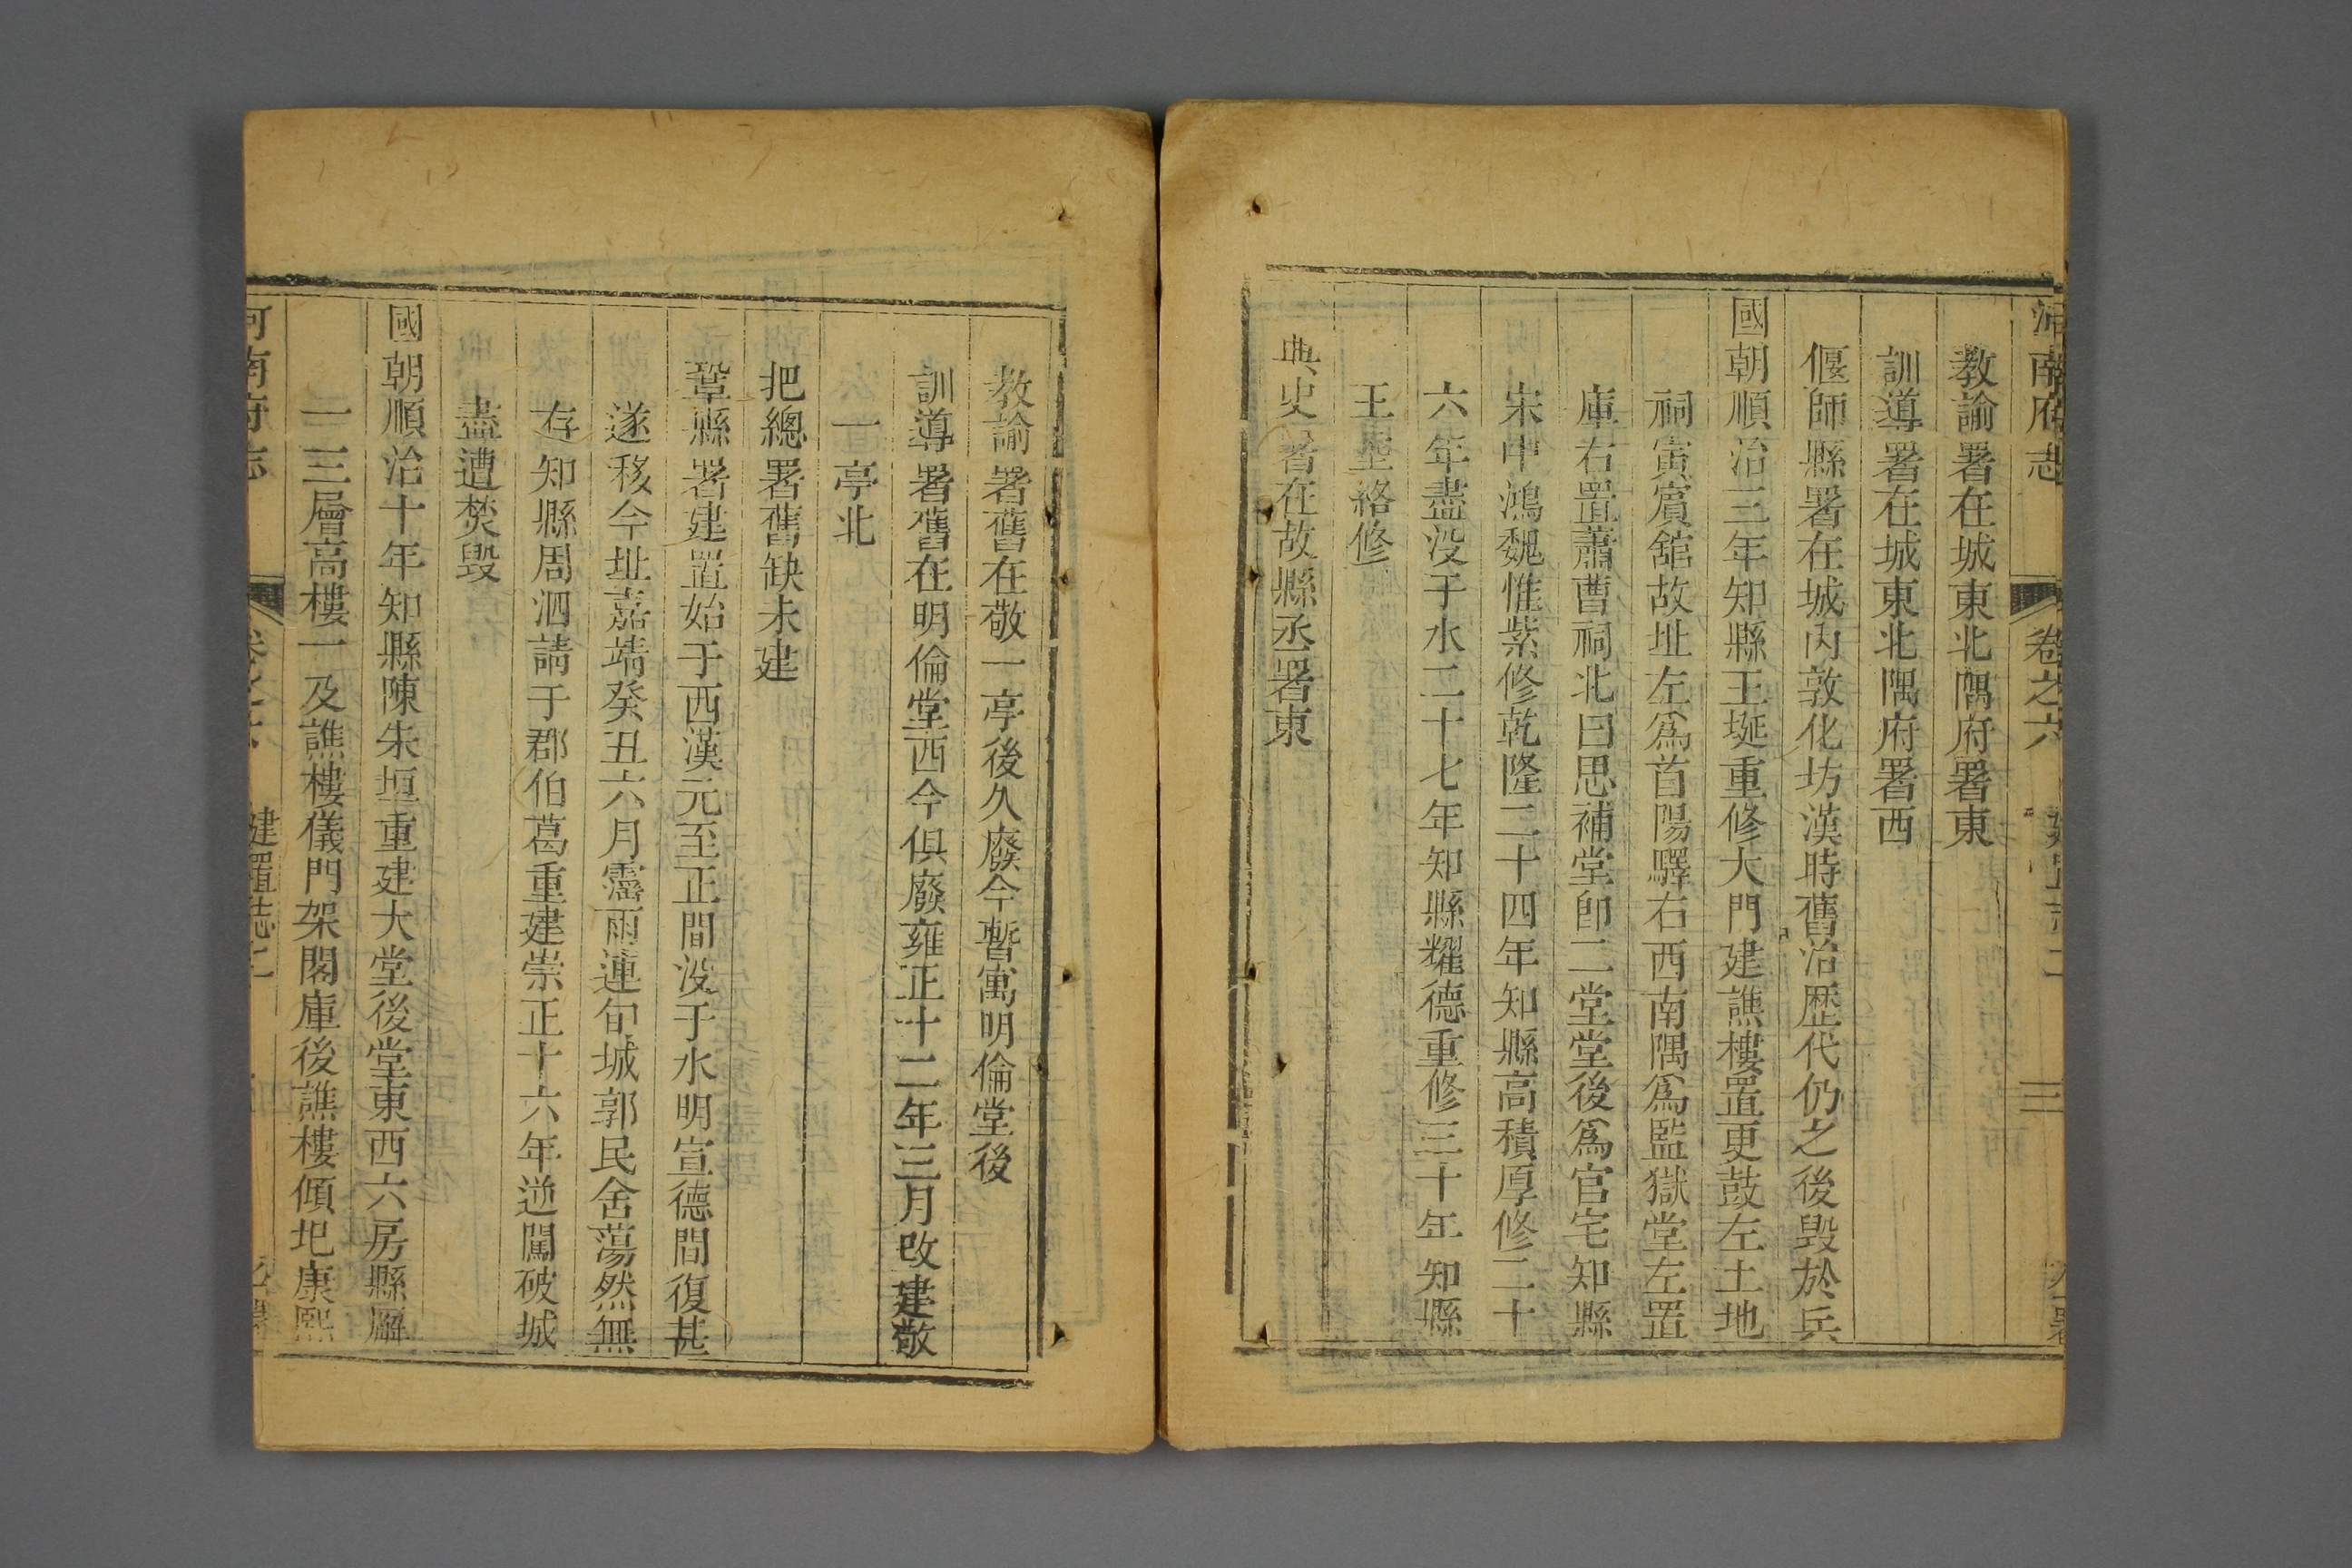 河南府志 卷之六 建置志二 三
教諭署在城東北隅府署東
訓導署在城東北隅府署西
偃師縣署在城内敦化坊漢時舊治歴代仍之後毁於兵
國朝順治三年知縣王埏重修大門建譙樓置更鼓左土地
祠寅賓舘故址左爲首陽驛右西南隅爲監獄堂左置
庫右置蕭曹祠北曰思補堂卽二堂堂後爲官宅知縣
宋申鴻魏惟紫修乾隆二十四年知縣高積厚修二十
六年盡没于水二十七年知縣耀德重修三十年知縣
王 絡修
典史署在故縣丞署東
教諭署舊在敬一亭後久廢今暫寓明倫堂後
訓導署舊在明倫堂西今俱廢雍正十二年三月改建敬
一亭北
把總署舊缺未建
鞏縣署建置始于西漢元至正間没于水明宣德間復甚
遂移今址嘉靖癸丑六月霪雨連旬城郭民舍蕩然無
存知縣周泗請于郡伯葛重建崇正十六年逆闖破城
盡遭焚毁
國朝順治十年知縣陳朱垣重建大堂後堂東西六房縣廨
一三層高樓一及譙樓儀門架閣庫後譙樓傾圯康熙
河南府志 卷之六 建置志二